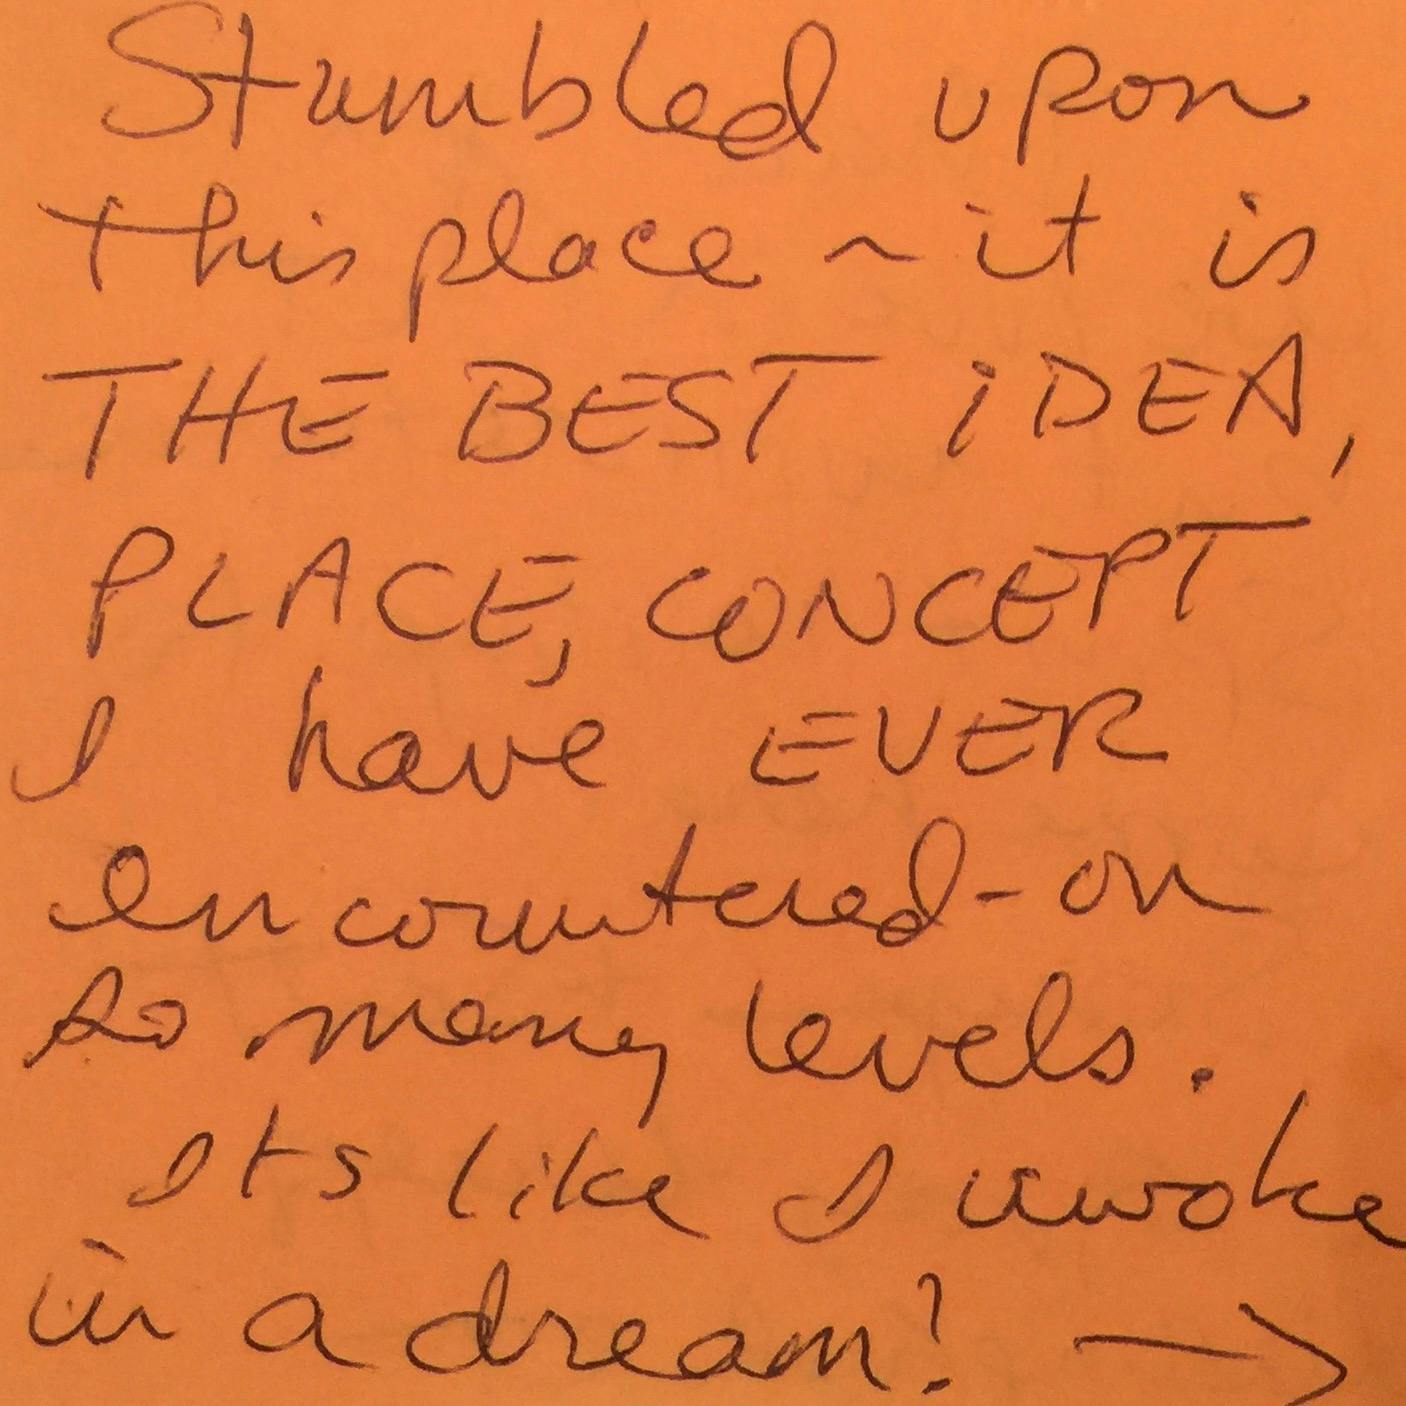 Stumbled upon
this place ~ it is
THE BEST iDEA,
PLACE, CONCEPT
I have EVER
encountered - on
so many levels.
Its like I awoke
in a dream! →